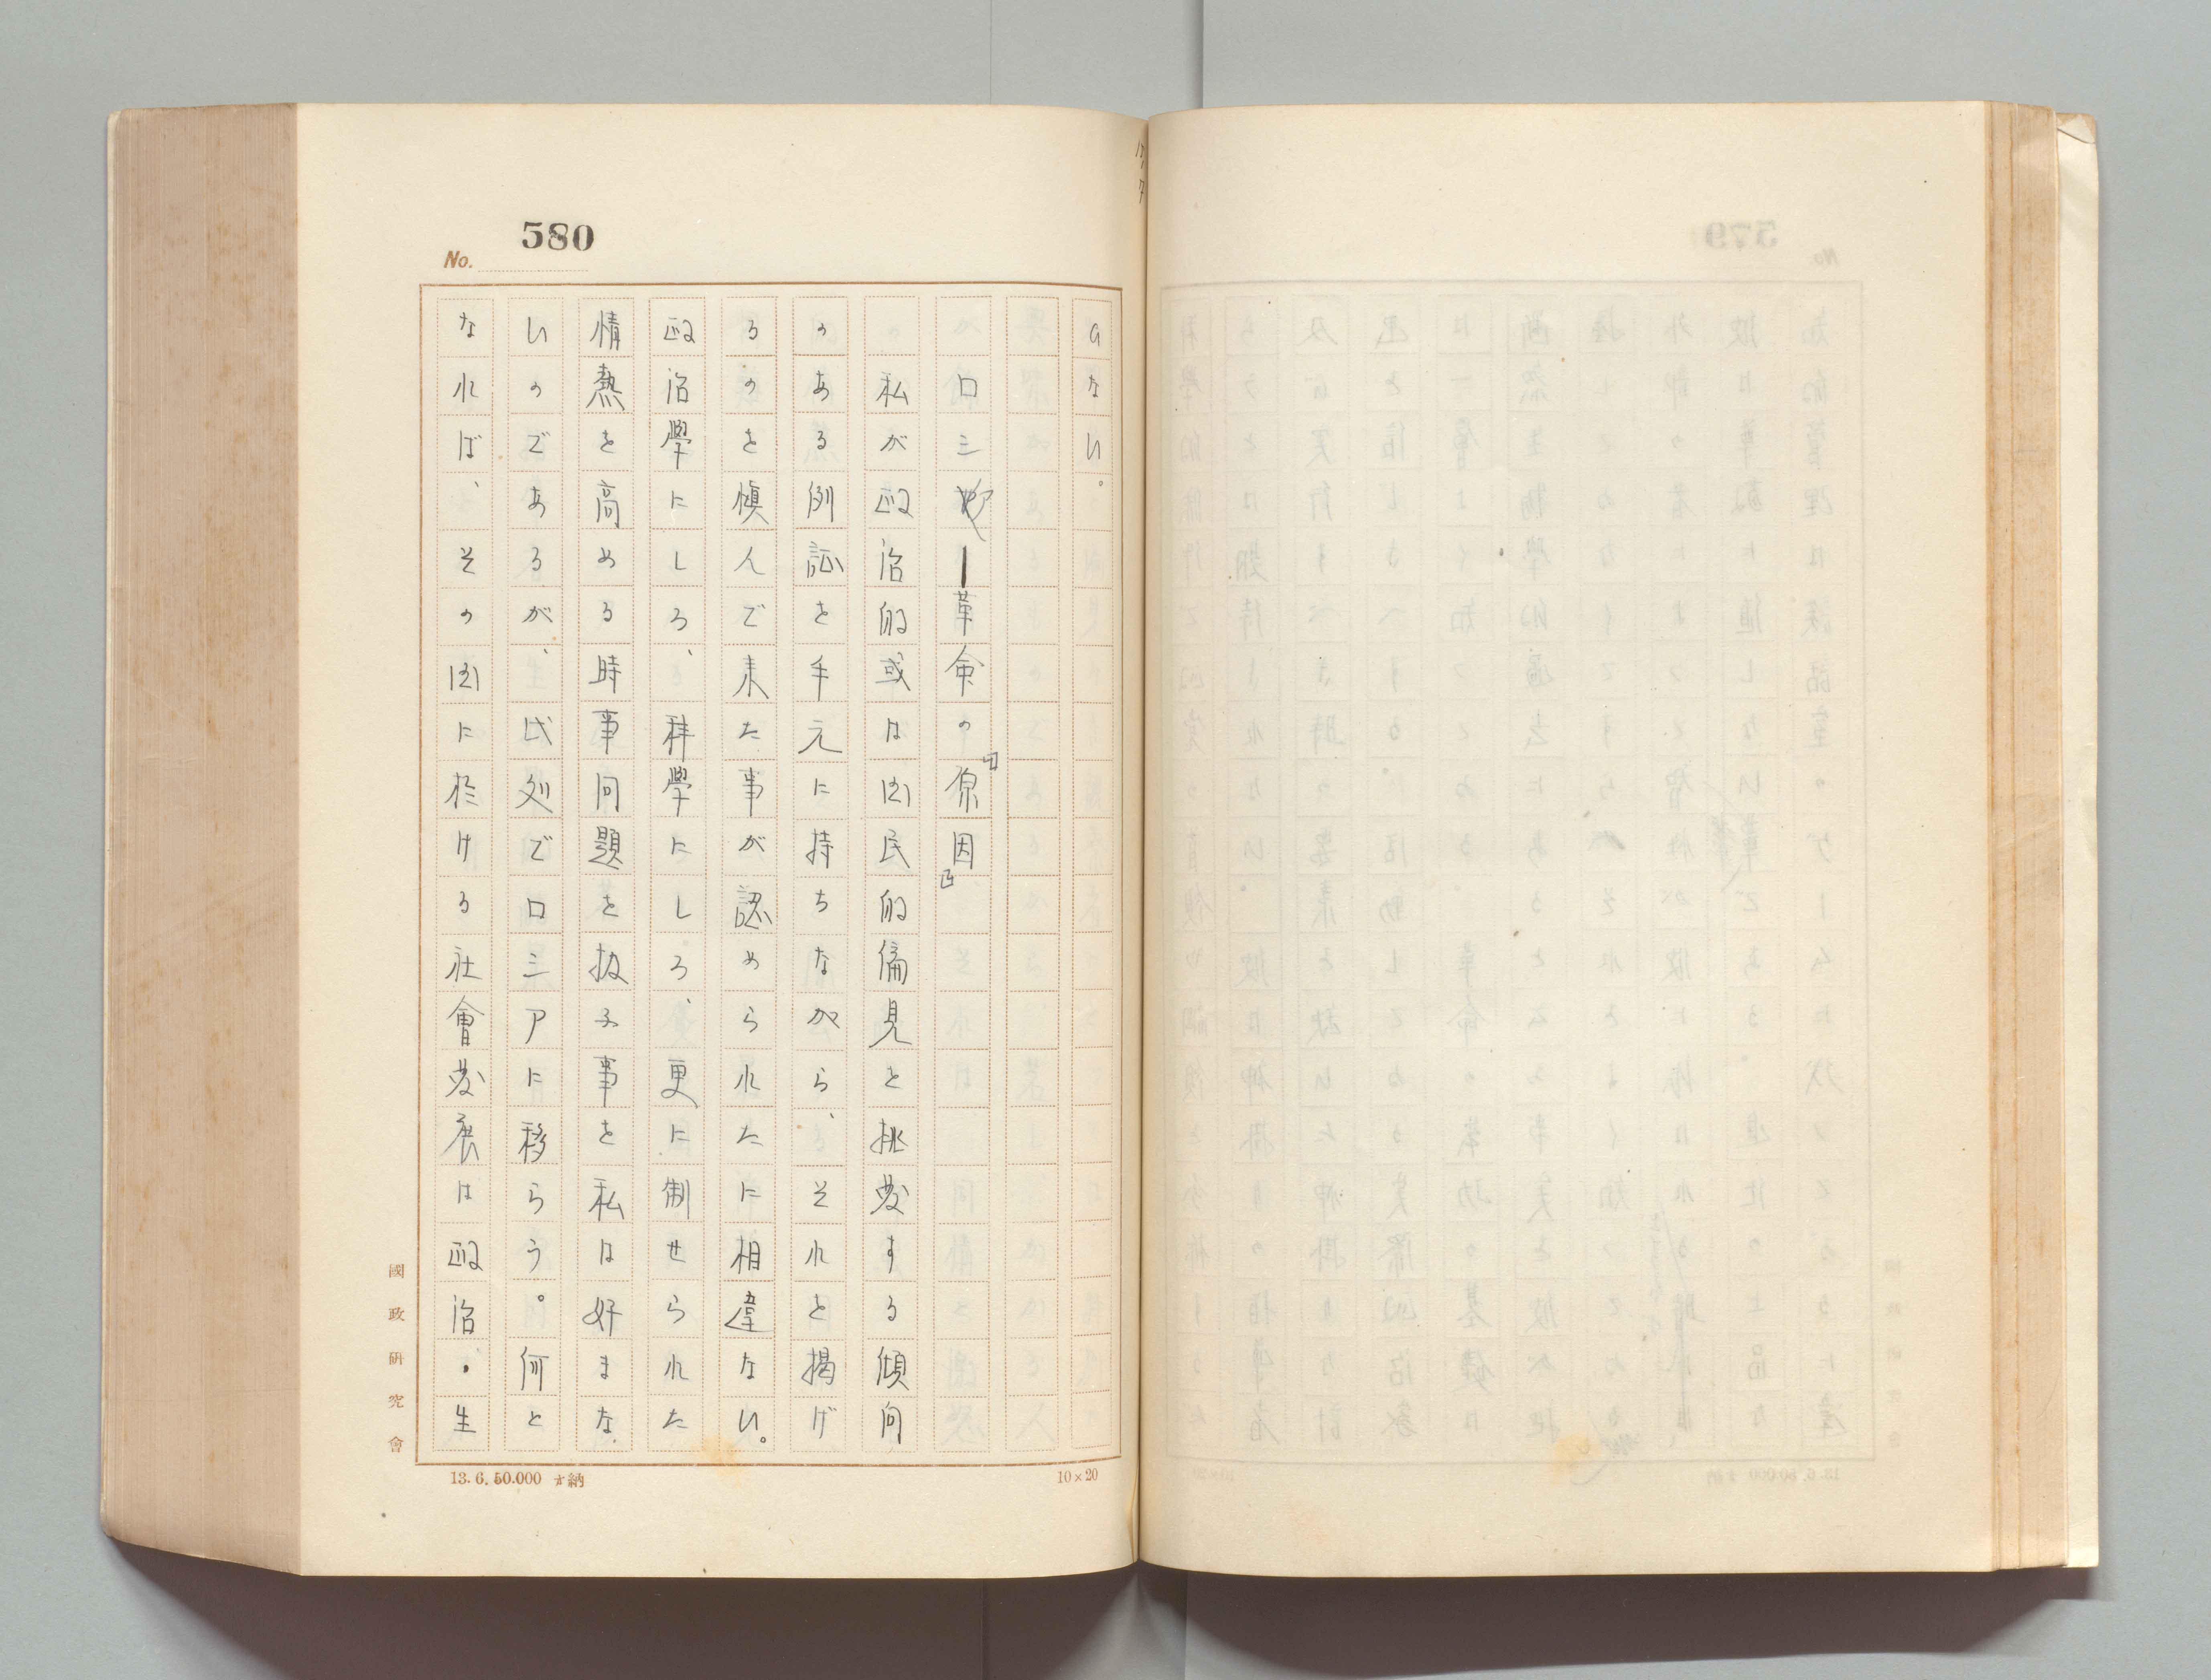 580
No.
ない。
ロシヤー革命の『原因』
私が政治的或は国民的偏見と挑発する傾向
のある例証を手元に持ちながら、それと掲げ
るのを慎んで来た事が認められたに相違ない。
政治學にしろ、科學にしろ、更に制せられた
情熱を高める時事問題を扱ふ事を私は好まな
いのであるが、此処でロシアに移らう。何と
なれば、その国に於ける社會発展は政治・生
國政研究會
13.6.50.000 オ納
10×20